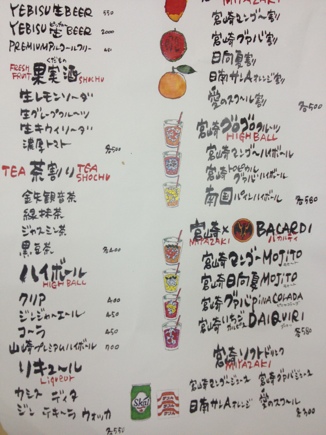 YEBISU生BEER 550
YEBISU生BEER 2000
PREMIUMアルコールフリー
FRESH FRUIT くだもの 果実酒 SHOCHU
生レモンソーダ
生グレープフルーツ
生キウイソーダ
濃厚トマト
TEA 茶割り TEA SHOCHU
金矢観音茶
緑抹茶
ジャスミン茶
黒豆茶 各400
ハイボール
HIGH BALL
クリア 400
ジンジャーエール 450
コーラ 450
山崎プレミアムハイボール 700
リキュール
Liqueur
カシス ディタ
ジン テキーラ ウォッカ
MIYAZAKI
宮崎マンゴー割り
宮崎グァバ割り
日向夏割り
日南サンAオレンジ割り
愛のスコール割り
各500
宮崎ゴロゴロフルーツ
HIGH BALL
宮崎マンゴーハイボール
宮崎トロピカルグァバハイボール
南国パインハイボール 各580
宮崎×BACARDI
MIYAZAKI バカルディ
宮崎マンゴーMOJITO
宮崎日向夏MOJITO
宮崎グァバPINACOLADA
宮崎いちごDAIQUIRI
各580
宮崎ソフトドリンク
MIYAZAKI
宮崎マンゴージュース 宮崎グァバジュース
日南サンAオレンジ 愛のスコール
各300
Skal